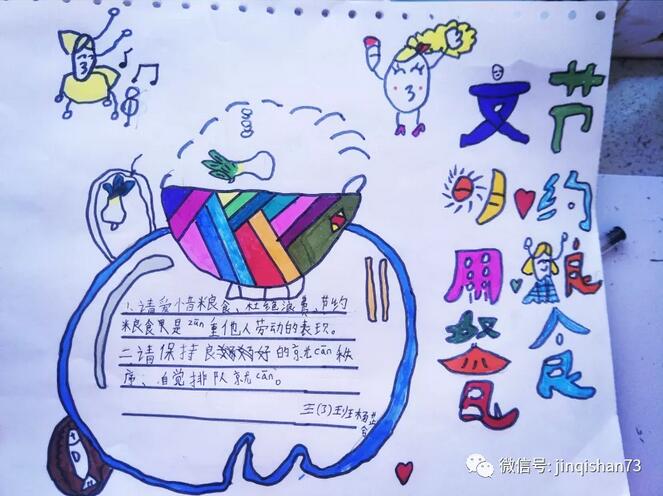 节约粮食
文明用餐
1、请爱惜粮食、杜绝浪费、节约
粮食果是zūn重他人劳动的表现。
二请保持良好的就cān秩
序、自觉排队就cān。
三(3)班杨
微信号: jinqishan73